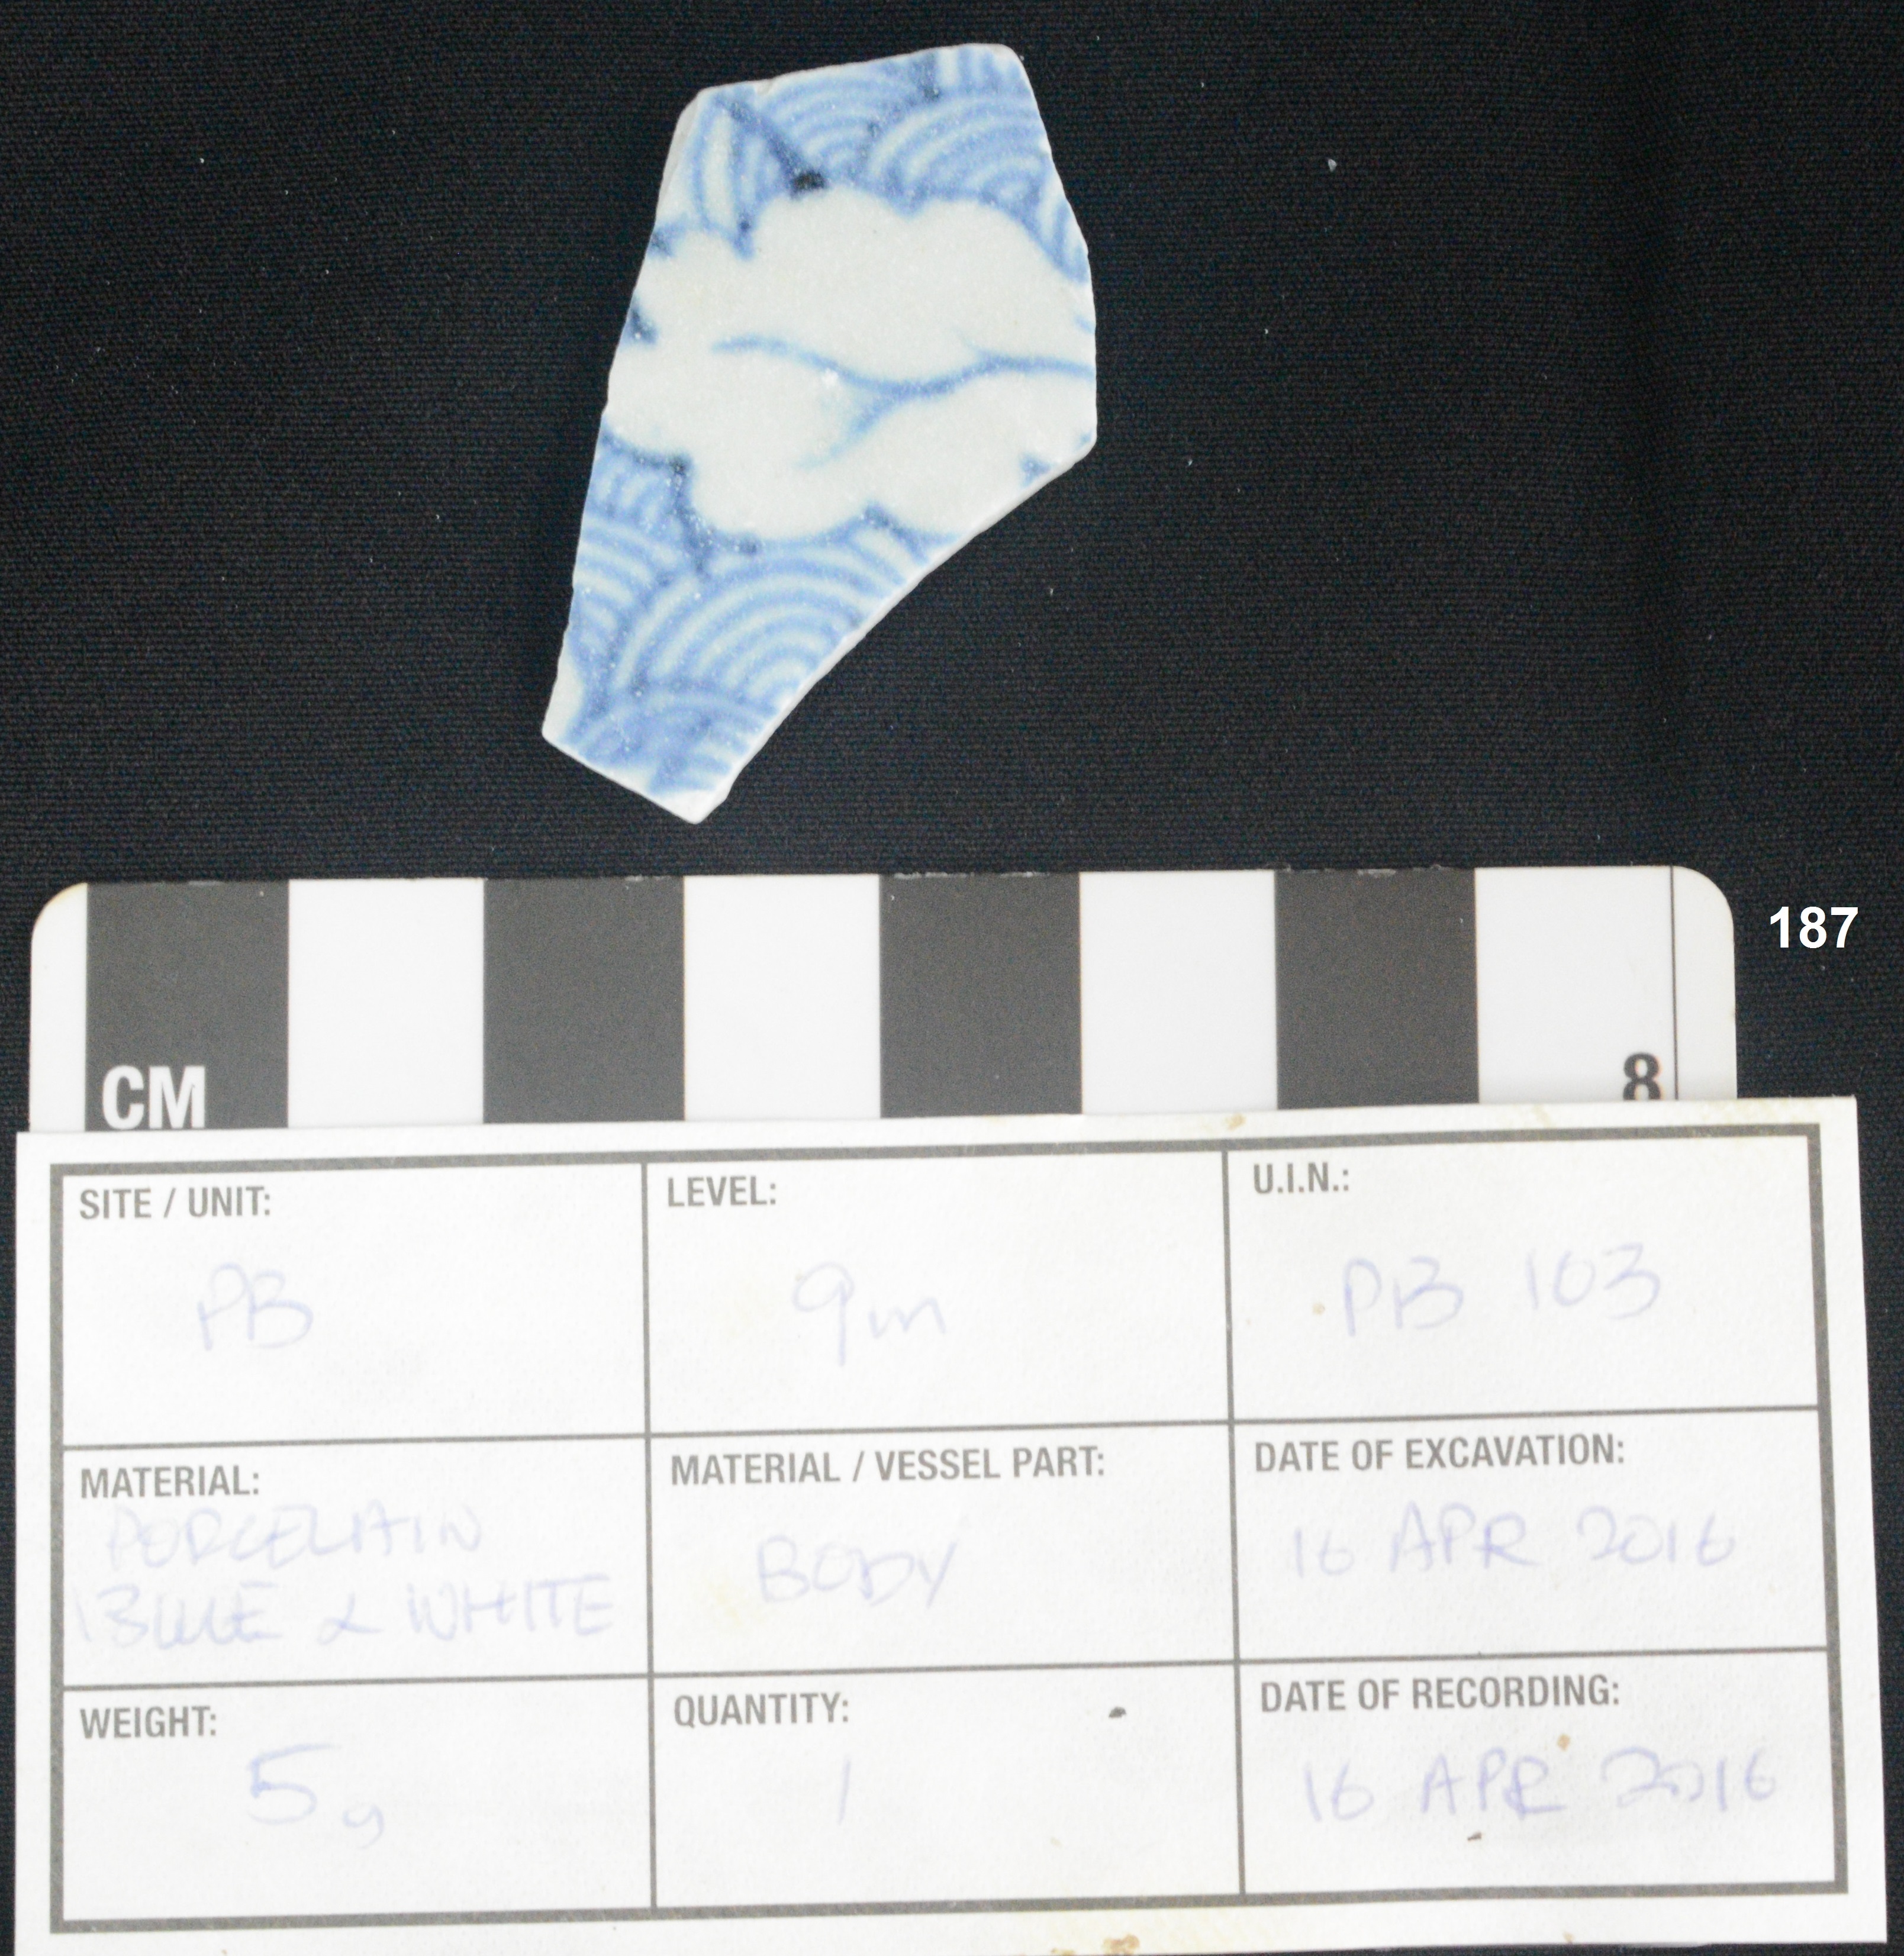 187
CM
8
SITE / UNIT:
PB
LEVEL:
9m
U.I.N.:
PB 103
MATERIAL:
PORCELAIN
BLUE & WHITE
MATERIAL / VESSEL PART:
BODY
DATE OF EXCAVATION:
16 APR 2016
WEIGHT:
5g
QUANTITY:
1
DATE OF RECORDING:
16 APR 2016